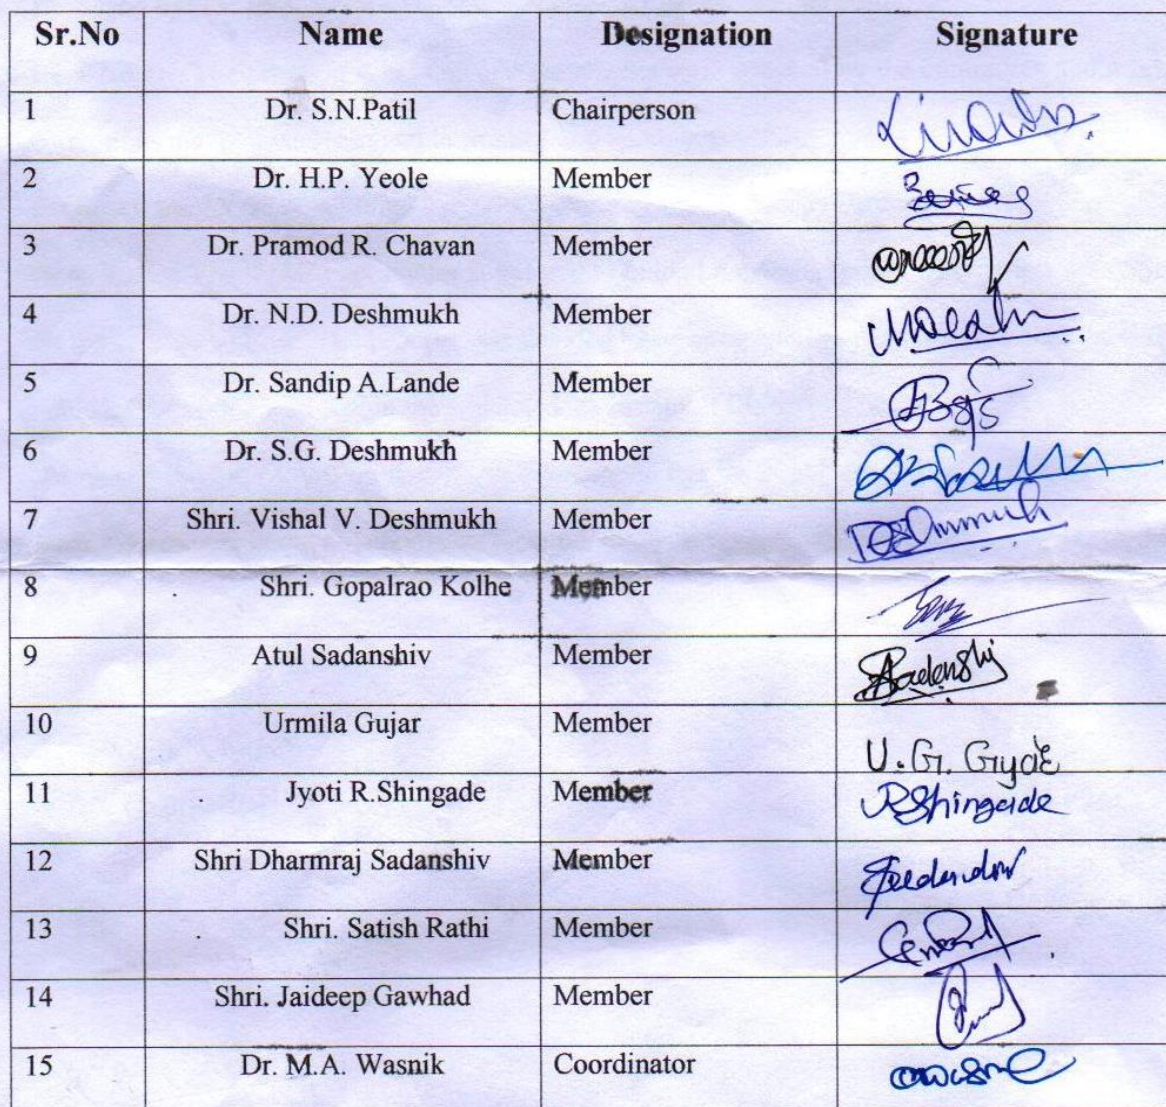 Sr.No Name Designation Signature
1 Dr. S.N.Patil Chairperson
2 Dr. H.P. Yeole Member
3 Dr. Pramod R. Chavan Member
4 Dr. N.D. Deshmukh Member
5 Dr. Sandip A.Lande Member
6 Dr. S.G. Deshmukh Member
7 Shri. Vishal V. Deshmukh Member Deshmukh
8 Shri. Gopalrao Kolhe Member
9 Atul Sadanshiv Member
10 Urmila Gujar Member U. G.
11 Jyoti R.Shingade Member RShingade
12 Shri Dharmraj Sadanshiv Member
13 Shri. Satish Rathi Member
14 Shri. Jaideep Gawhad Member
15 Dr. M.A. Wasnik Coordinator